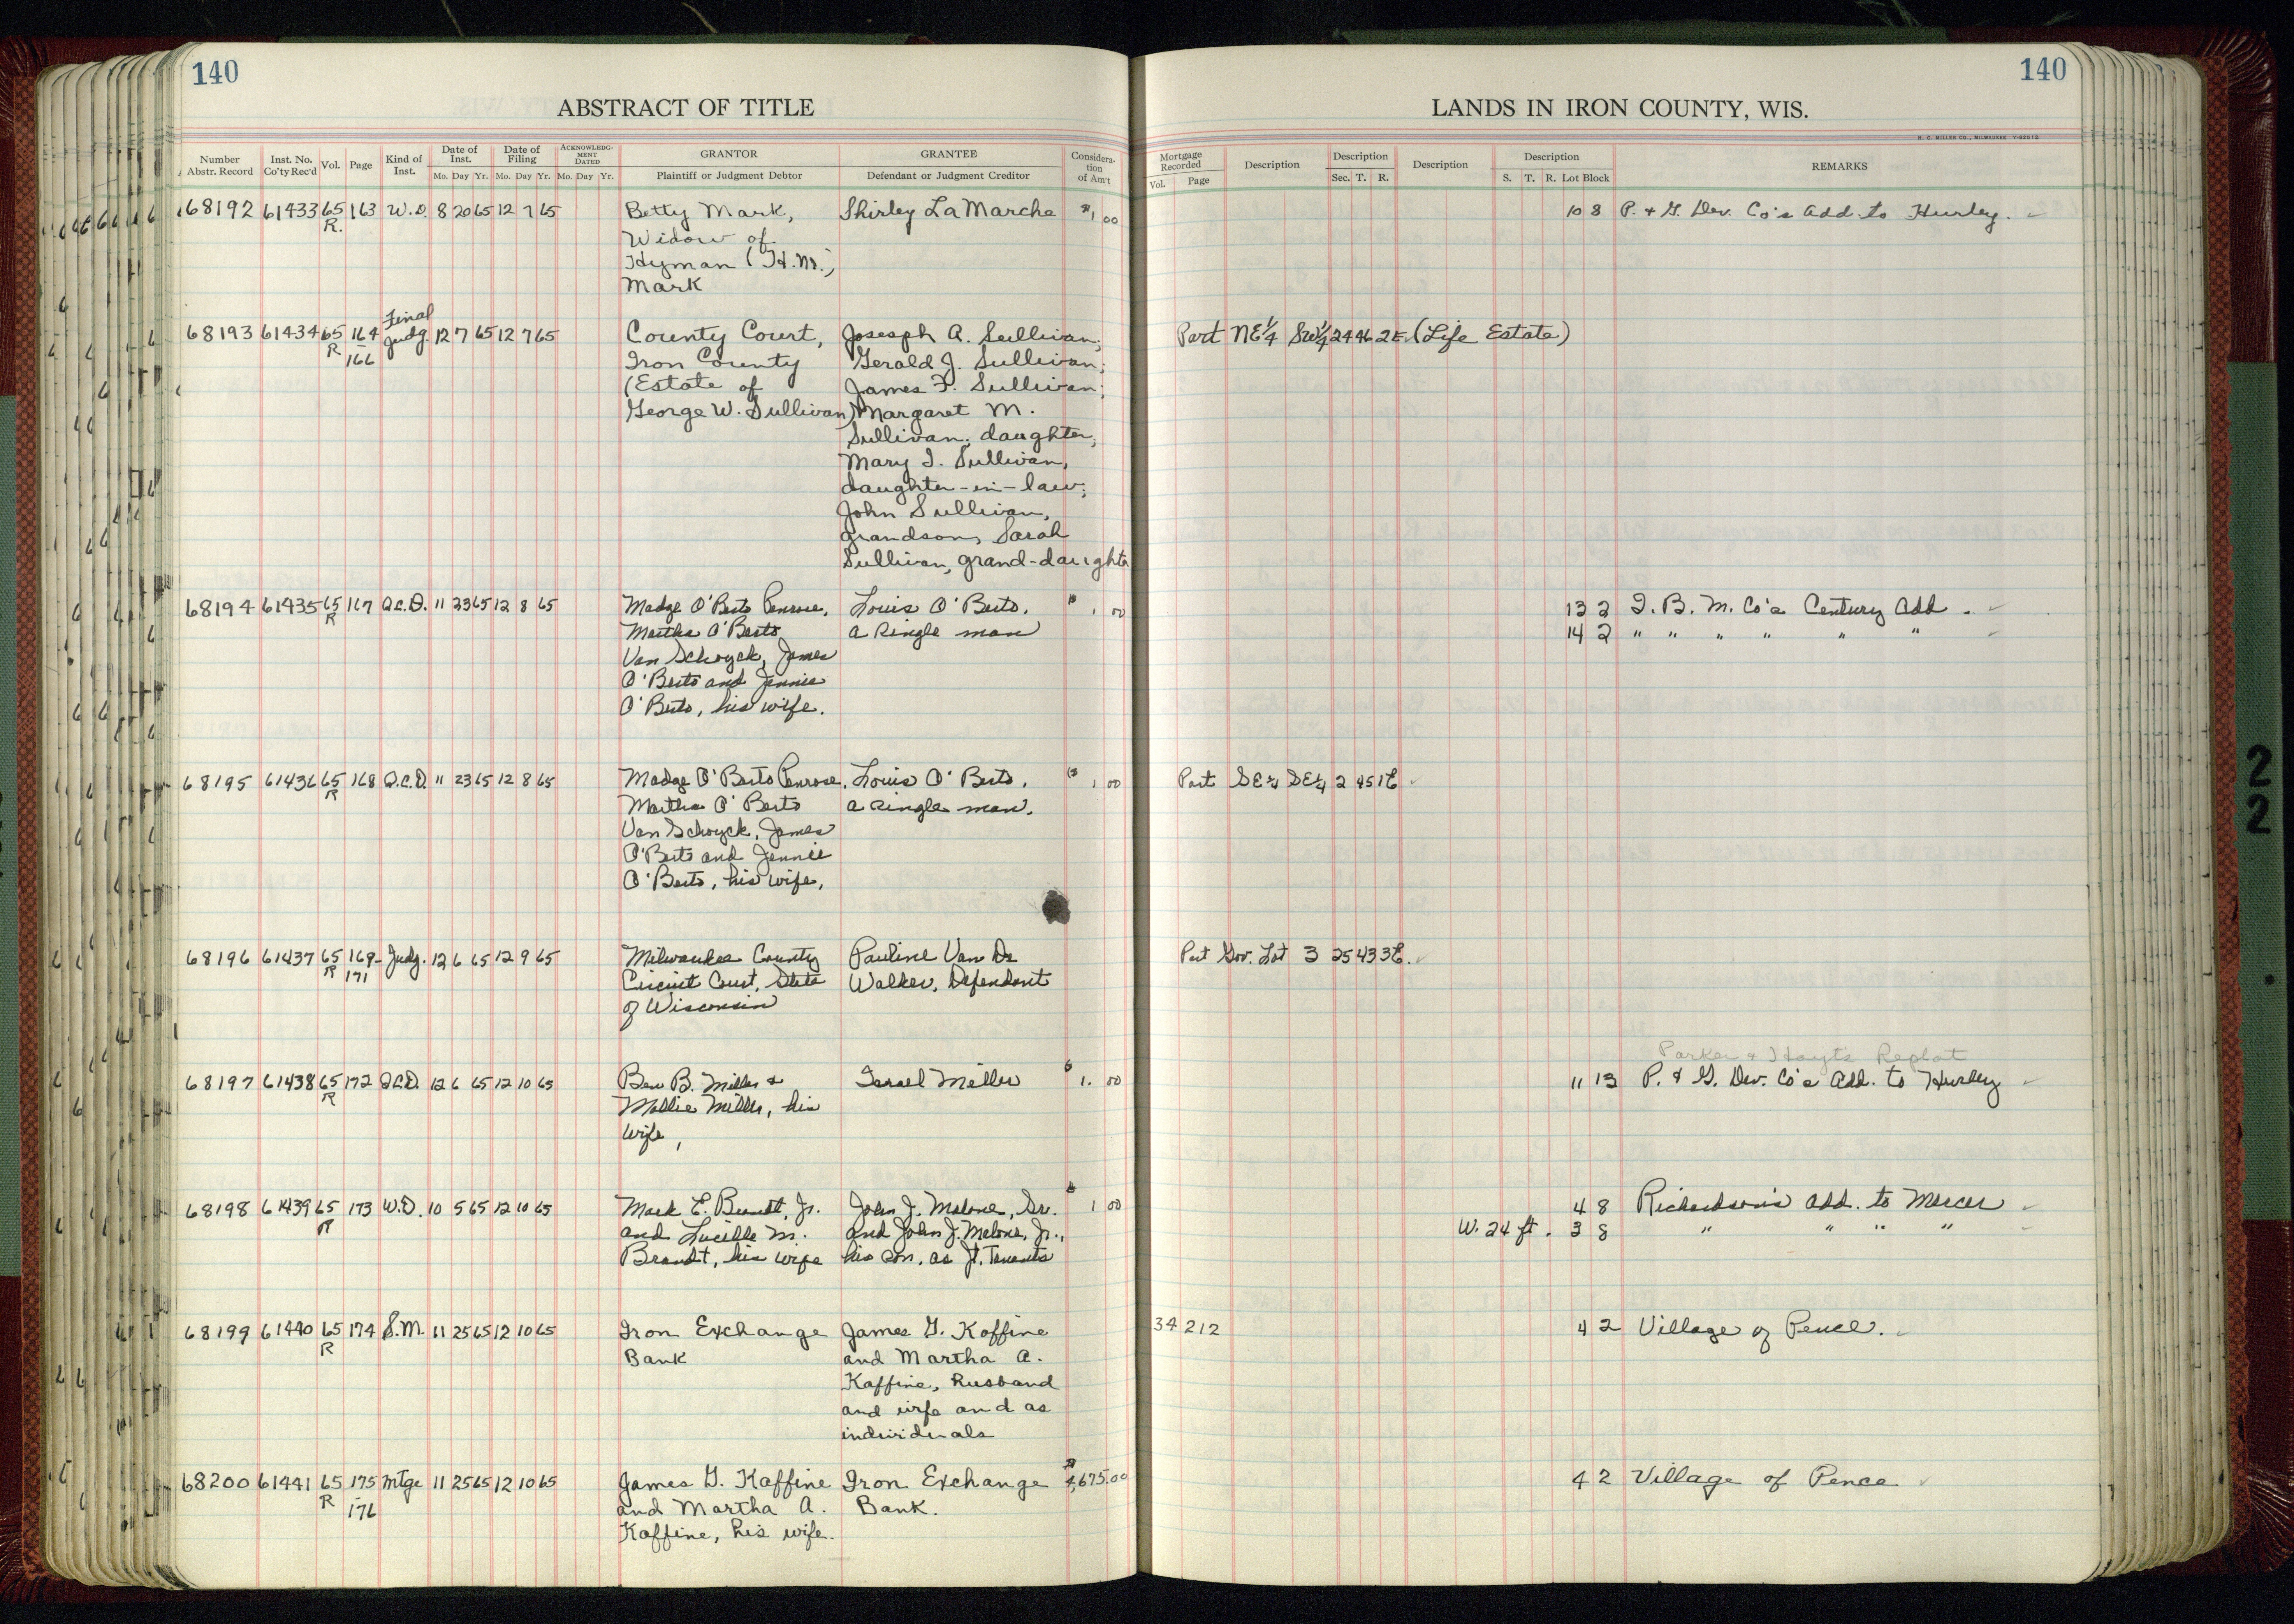 140
140
ABSTRACT OF TITLE
LANDS IN IRON COUNTY, WIS.
H. C. MILLER CO., MILWAUKEE
Number Abstr. Record Inst. No. Co'ty Rec'd Vol. Page Kind of Inst. Date of Inst. Mo. Day Yr. Date of Filing Mo. Day Yr. ACKNOWLEDGMENT DATED Mo. Day Yr. GRANTOR Plaintiff or Judgment Debtor GRANTEE Defendant or Judgment Creditor Consideration of Am't
Mortgage Recorded Vol. Page Description Description Sec. T. R. Description Description S. T. R. Lot Block REMARKS
68192 61433 65 163 W.D. 8 20 65 12 7 65 Betty Mark, Shirley LaMarche $1 00 10 8 P. & G. Dev. Co's Add. to Hurley.
R. Widow of
Hyman (H.M.)
Mark
68193 61434 65 164 Final Judg. 12 7 65 12 7 65 County Court, Josesph A. Sullivan; Part NE¼ SW¼ 24 46 2E. (Life Estate)
R 166 Iron County Gerald J. Sullivan;
(Estate of James F. Sullivan;
George W. Sullivan) Margaret M.
Sullivan, daughter;
Mary I. Sullivan,
daughter-in-law;
John Sullivan,
grandson, Sarah
Sullivan, grand-daughter
68194 61435 65 167 Q.C.D. 11 23 65 12 8 65 Madge O'Berto Penrose, Louis O'Berto, $ 1 00 13 2 I. B. M. Co's Century Add.
R Martha O'Berto a single man 14 2 " " " " " "
Van Schoyck, James
O'Berto and Jennie
O'Berto, his wife.
68195 61436 65 168 Q.C.D. 11 23 65 12 8 65 Madge O'Berto Penrose, Louis O'Berto, $ 1 00 Part SE¼ SE¼ 2 45 1E
R Martha O'Berto a single man.
Van Schoyck, James
O'Berto and Jennie
O'Berto, his wife,
68196 61437 65 169- Judg. 12 6 65 12 9 65 Milwaukee County Pauline Van De Part Gov. Lot 3 25 43 3E.
R 171 Circuit Court, State Walker, Defendant
of Wisconsin
Parker & Hayt's Replat
68197 61438 65 172 Q.C.D. 12 6 65 12 10 65 Ben B. Miller & Israel Miller $ 1. 00 11 13 P. & G. Dev. Co's Add. to Hurley
R Mollie Miller, his
wife,
68198 61439 65 173 W.D. 10 5 65 12 10 65 Mark E. Brandt, Jr. John J. Malone, Sr. $ 1 00 4 8 Richardson's Add. to Mercer
R and Lucille M. and John J. Malone, Jr., W. 24 ft. 3 8 " " " "
Brandt, his wife his son, as Jt. Tenants
68199 61440 65 174 S.M. 11 25 65 12 10 65 Iron Exchange James G. Kaffine 34 212 4 2 Village of Pence.
R Bank and Martha A.
Kaffine, husband
and wife and as
individuals
68200 61441 65 175 Mtge 11 25 65 12 10 65 James G. Kaffine Iron Exchange $4,675.00 4 2 Village of Pence
R 176 and Martha A. Bank.
Kaffine, his wife.